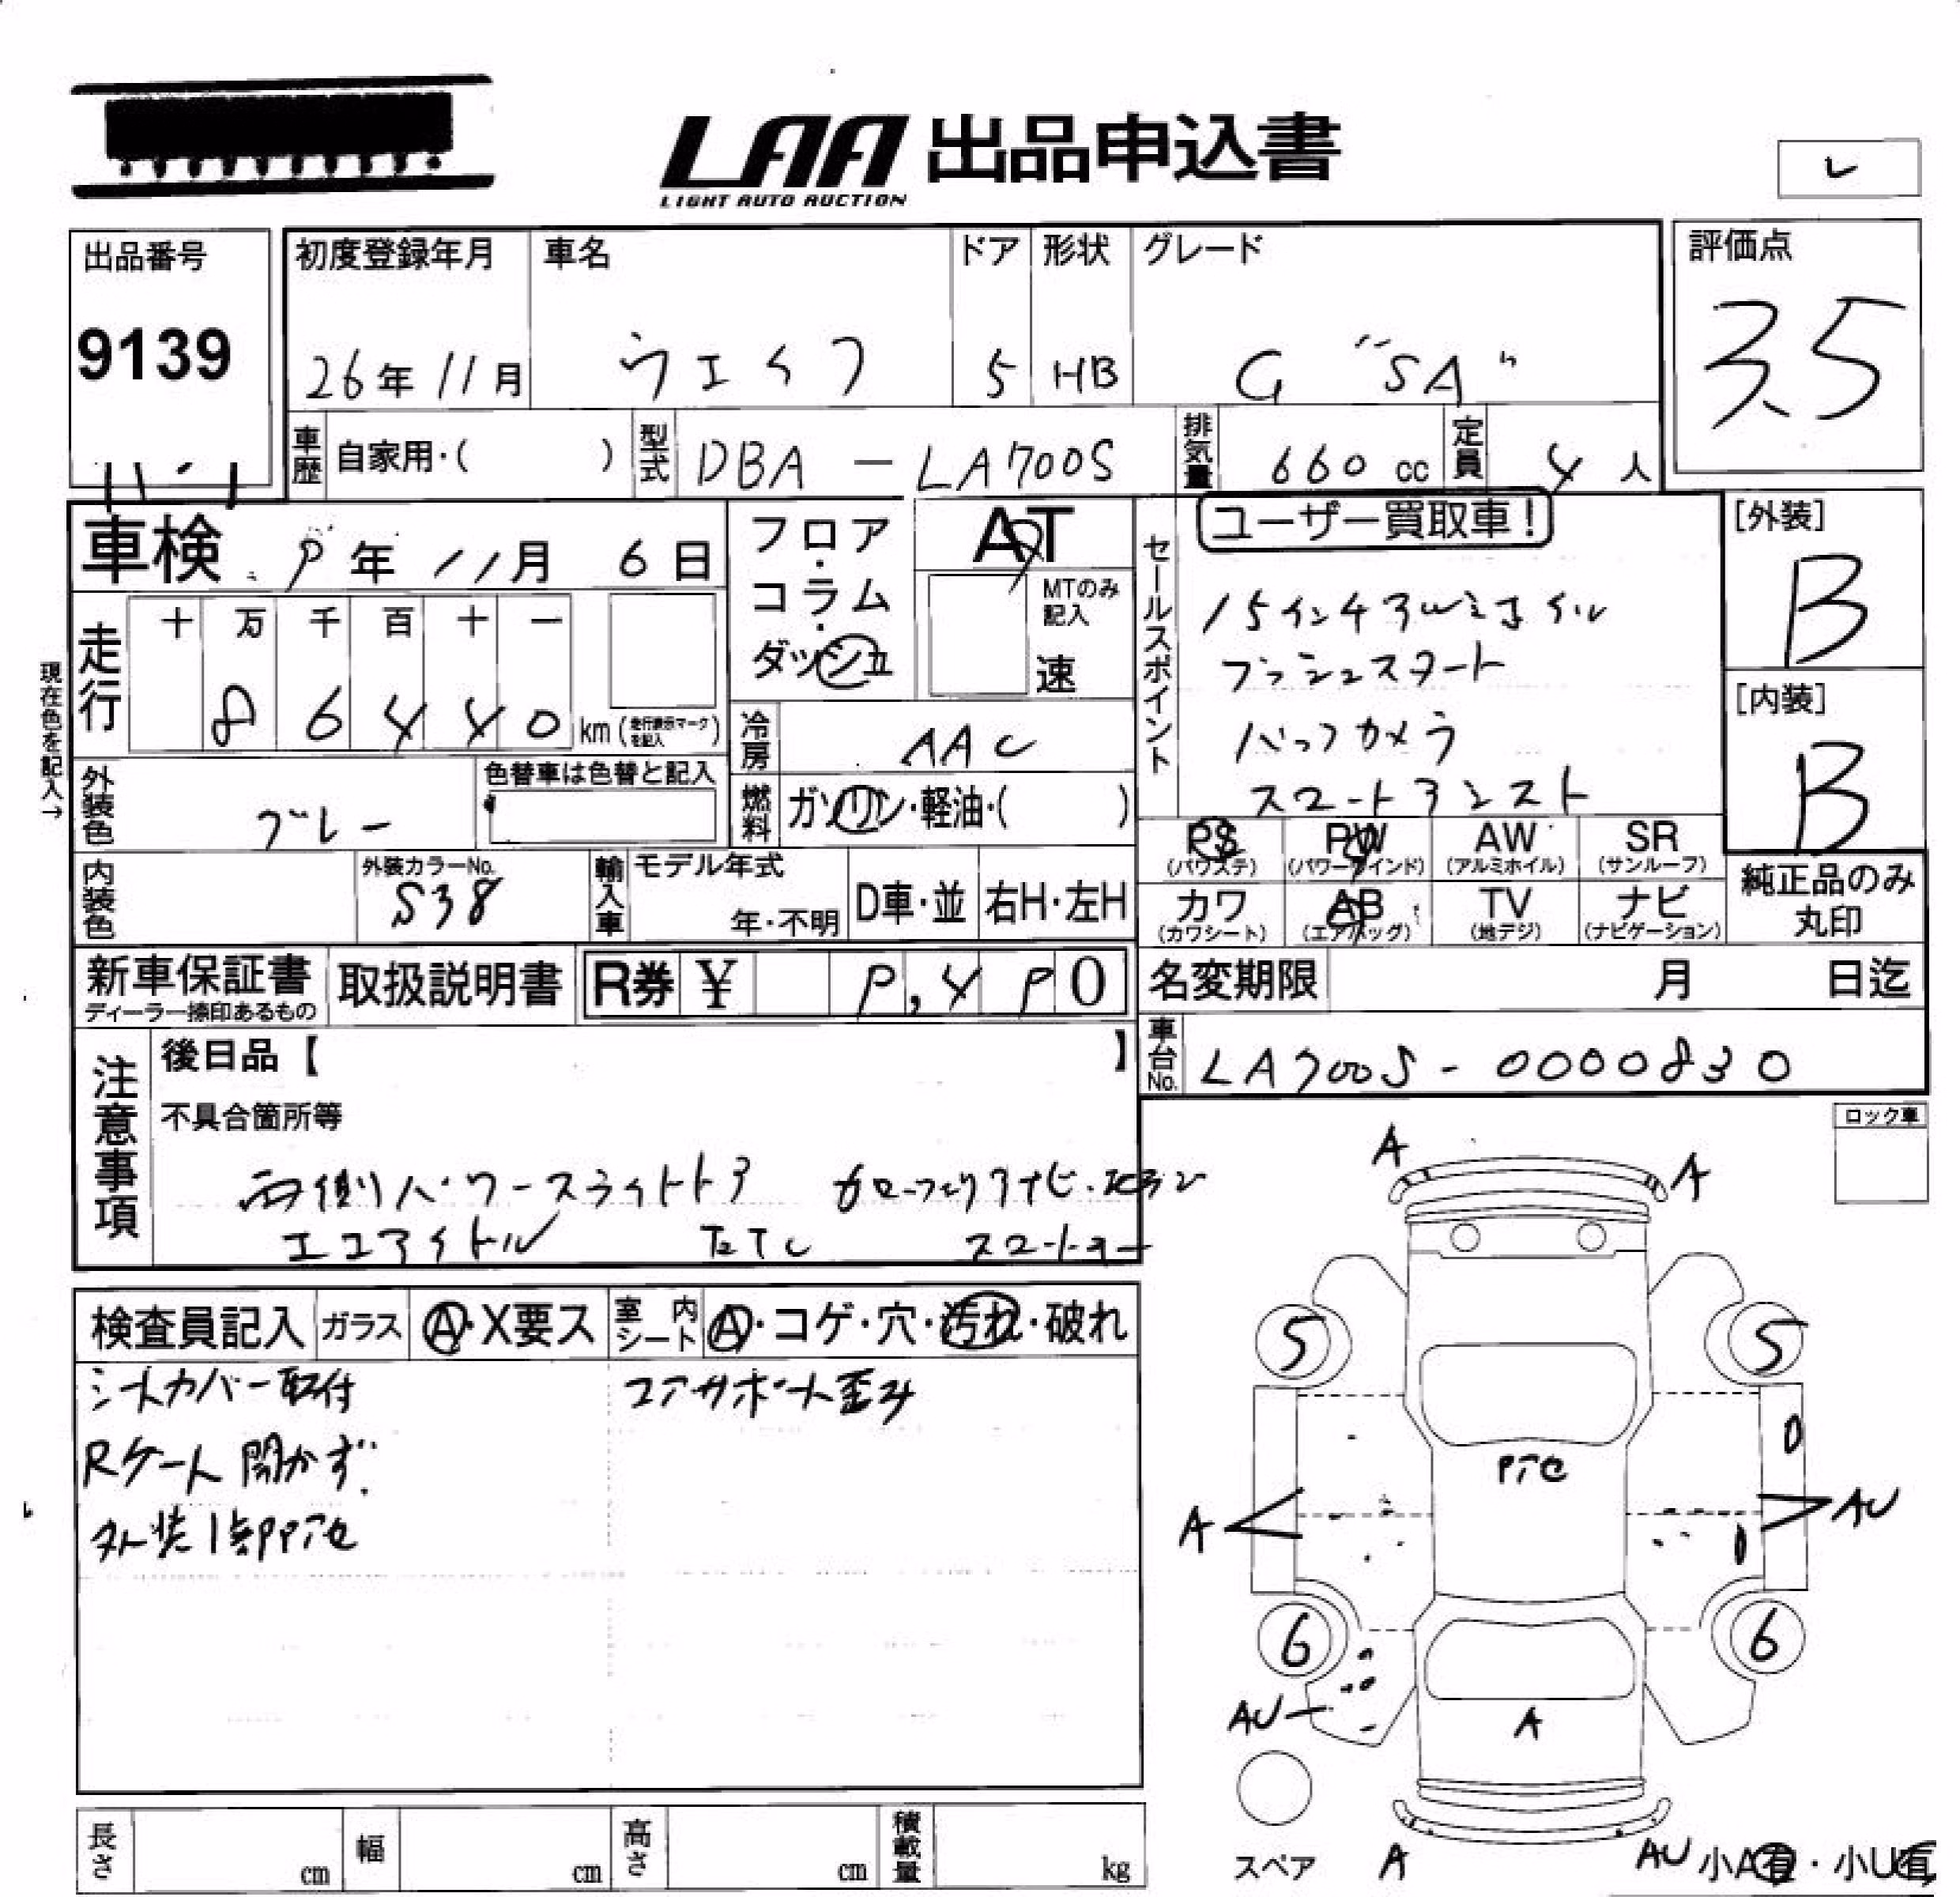 LAA 出品申込書
LIGHT AUTO AUCTION
レ
出品番号
9139
初度登録年月
26年 11月
車名
ウェイク
ドア
5
形状
HB
グレード
G "SA"
評価点
3.5
車歴 自家用・( )
型式 DBA - LA700S
排気量 660 cc
定員 4 人
車検 9年 11月 6日
フロア・コラム・ダッシュ
AT
MTのみ記入
速
セールスポイント
ユーザー買取車!
15インチアルミホイル
プッシュスタート
バックカメラ
スマートアシスト
[外装]
B
[内装]
B
現在色を記入→
走行
十 万 千 百 十 一
8 6 4 4 0 km (走行表示マークを記入)
冷房 AAC
燃料 ガソリン・軽油・( )
外装色 グレー
色替車は色替と記入
内装色
外装カラーNo.
S38
輸入車 モデル年式
年・不明
D車・並
右H・左H
PS (パワステ)
PW (パワーウインド)
AW (アルミホイル)
SR (サンルーフ)
カワ (カワシート)
AB (エアバッグ)
TV (地デジ)
ナビ (ナビゲーション)
純正品のみ丸印
新車保証書
ディーラー捺印あるもの
取扱説明書
R券 ¥ 9,490
名変期限 月 日迄
車台No. LA700S-0000830
注意事項
後日品【 】
不具合箇所等
両側パワースライドドア
エコアイドル ETC スマートキー
ロック車
検査員記入
ガラス A・X要ス
室内シート A・コゲ・穴・汚れ・破れ
シートカバー取付
コアサポート歪み
Rゲート開かず.
外装1部Pアセ
A
A
5
5
Pアセ
A
AU
6
6
AU
A
スペア
A
AU
小A有・小U有
長さ cm
幅 cm
高さ cm
積載量 kg